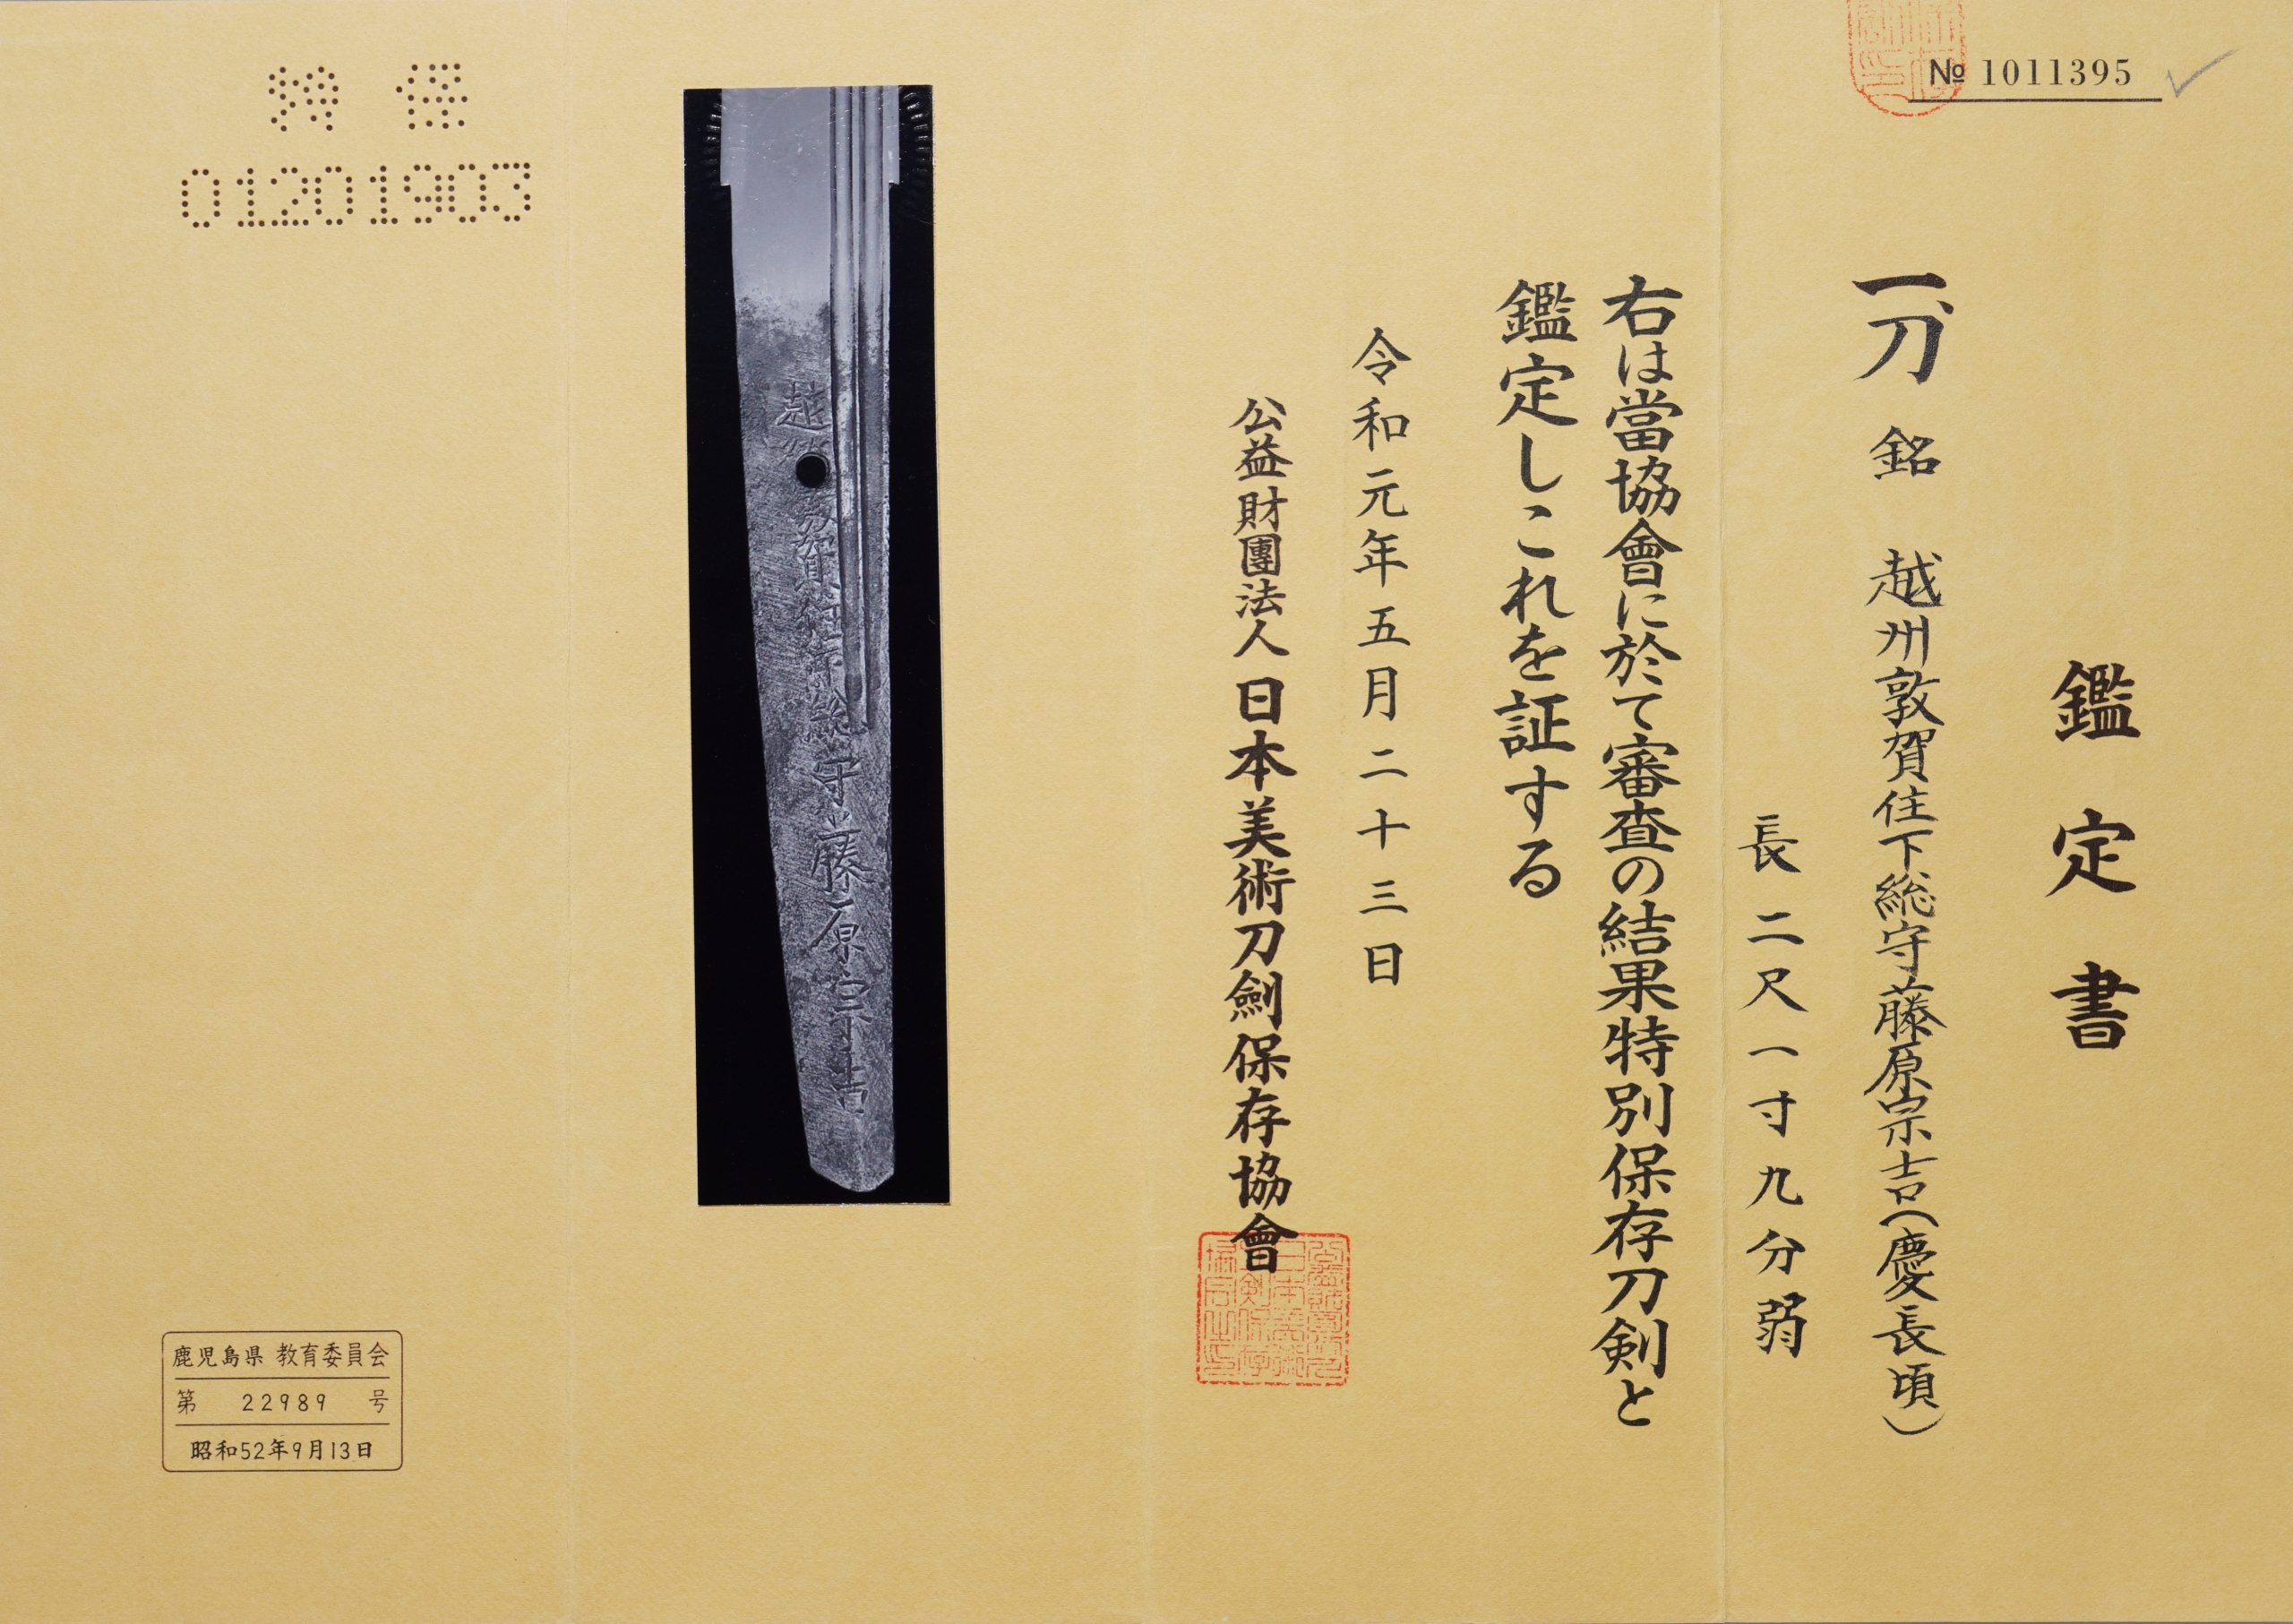 № 1011395
鑑定書
一、刀 銘 越州敦賀住下総守藤原宗吉(慶長頃)
長二尺一寸九分弱
右は當協會に於て審査の結果特別保存刀剣と
鑑定しこれを証する
令和元年五月二十三日
公益財團法人日本美術刀劍保存協會
越
賀住下総守藤原宗吉
保
01201903
鹿児島県 教育委員会
第 22989 号
昭和52年9月13日